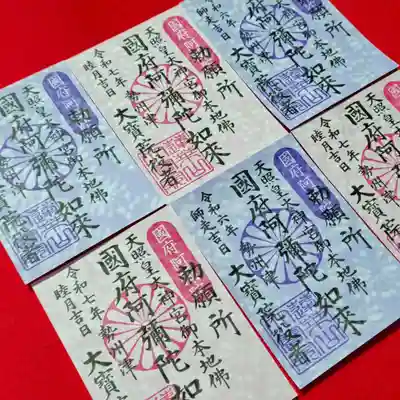 國府阿
勅願所
天照皇大神宮御本地佛
國府阿彌陀如来
勢州津
大寶院役者
令和七年
睦月吉日
國府阿
勅願所
天照皇大神宮御本地佛
國府阿彌陀如来
勢州津
大寶院役者
令和七年
睦月吉日
國府阿
勅願所
天照皇大神宮御本地佛
國府阿彌陀如来
勢州津
大寶院役者
令和六年
師走吉日
國府阿
勅願所
天照皇大神宮御本地佛
國府阿彌陀如来
勢州津
大寶院役者
令和七年
睦月吉日
國府阿
勅願所
天照皇大神宮御本地佛
國府阿彌陀如来
勢州津
大寶院役者
令和六年
師走吉日
天照皇大
國府阿
大寶
令和七年
睦月吉日